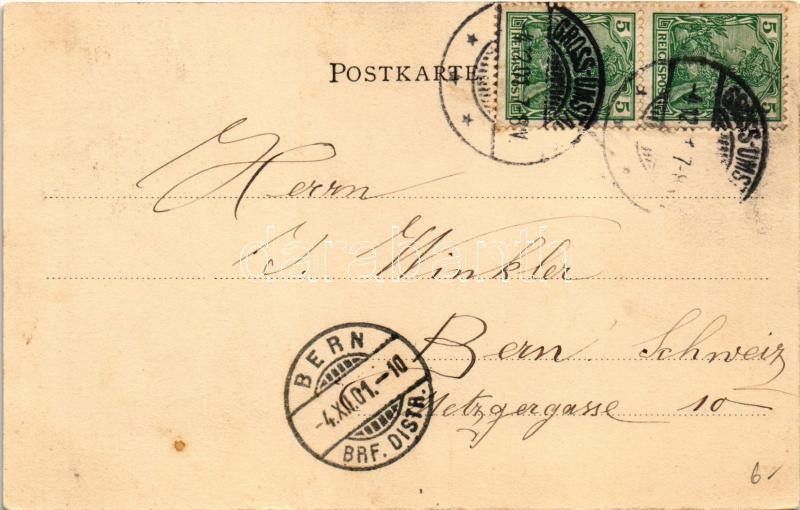 POSTKARTE
5 REICHSPOST 5
5 REICHSPOST 5
GROSS-UMST
GROSS-UMS
Herrn
J. Winkler
Bern. Schweiz
Metzgergasse 10
BERN
-4.XII.01.-10
BRF. DISTR.
darabanth
6